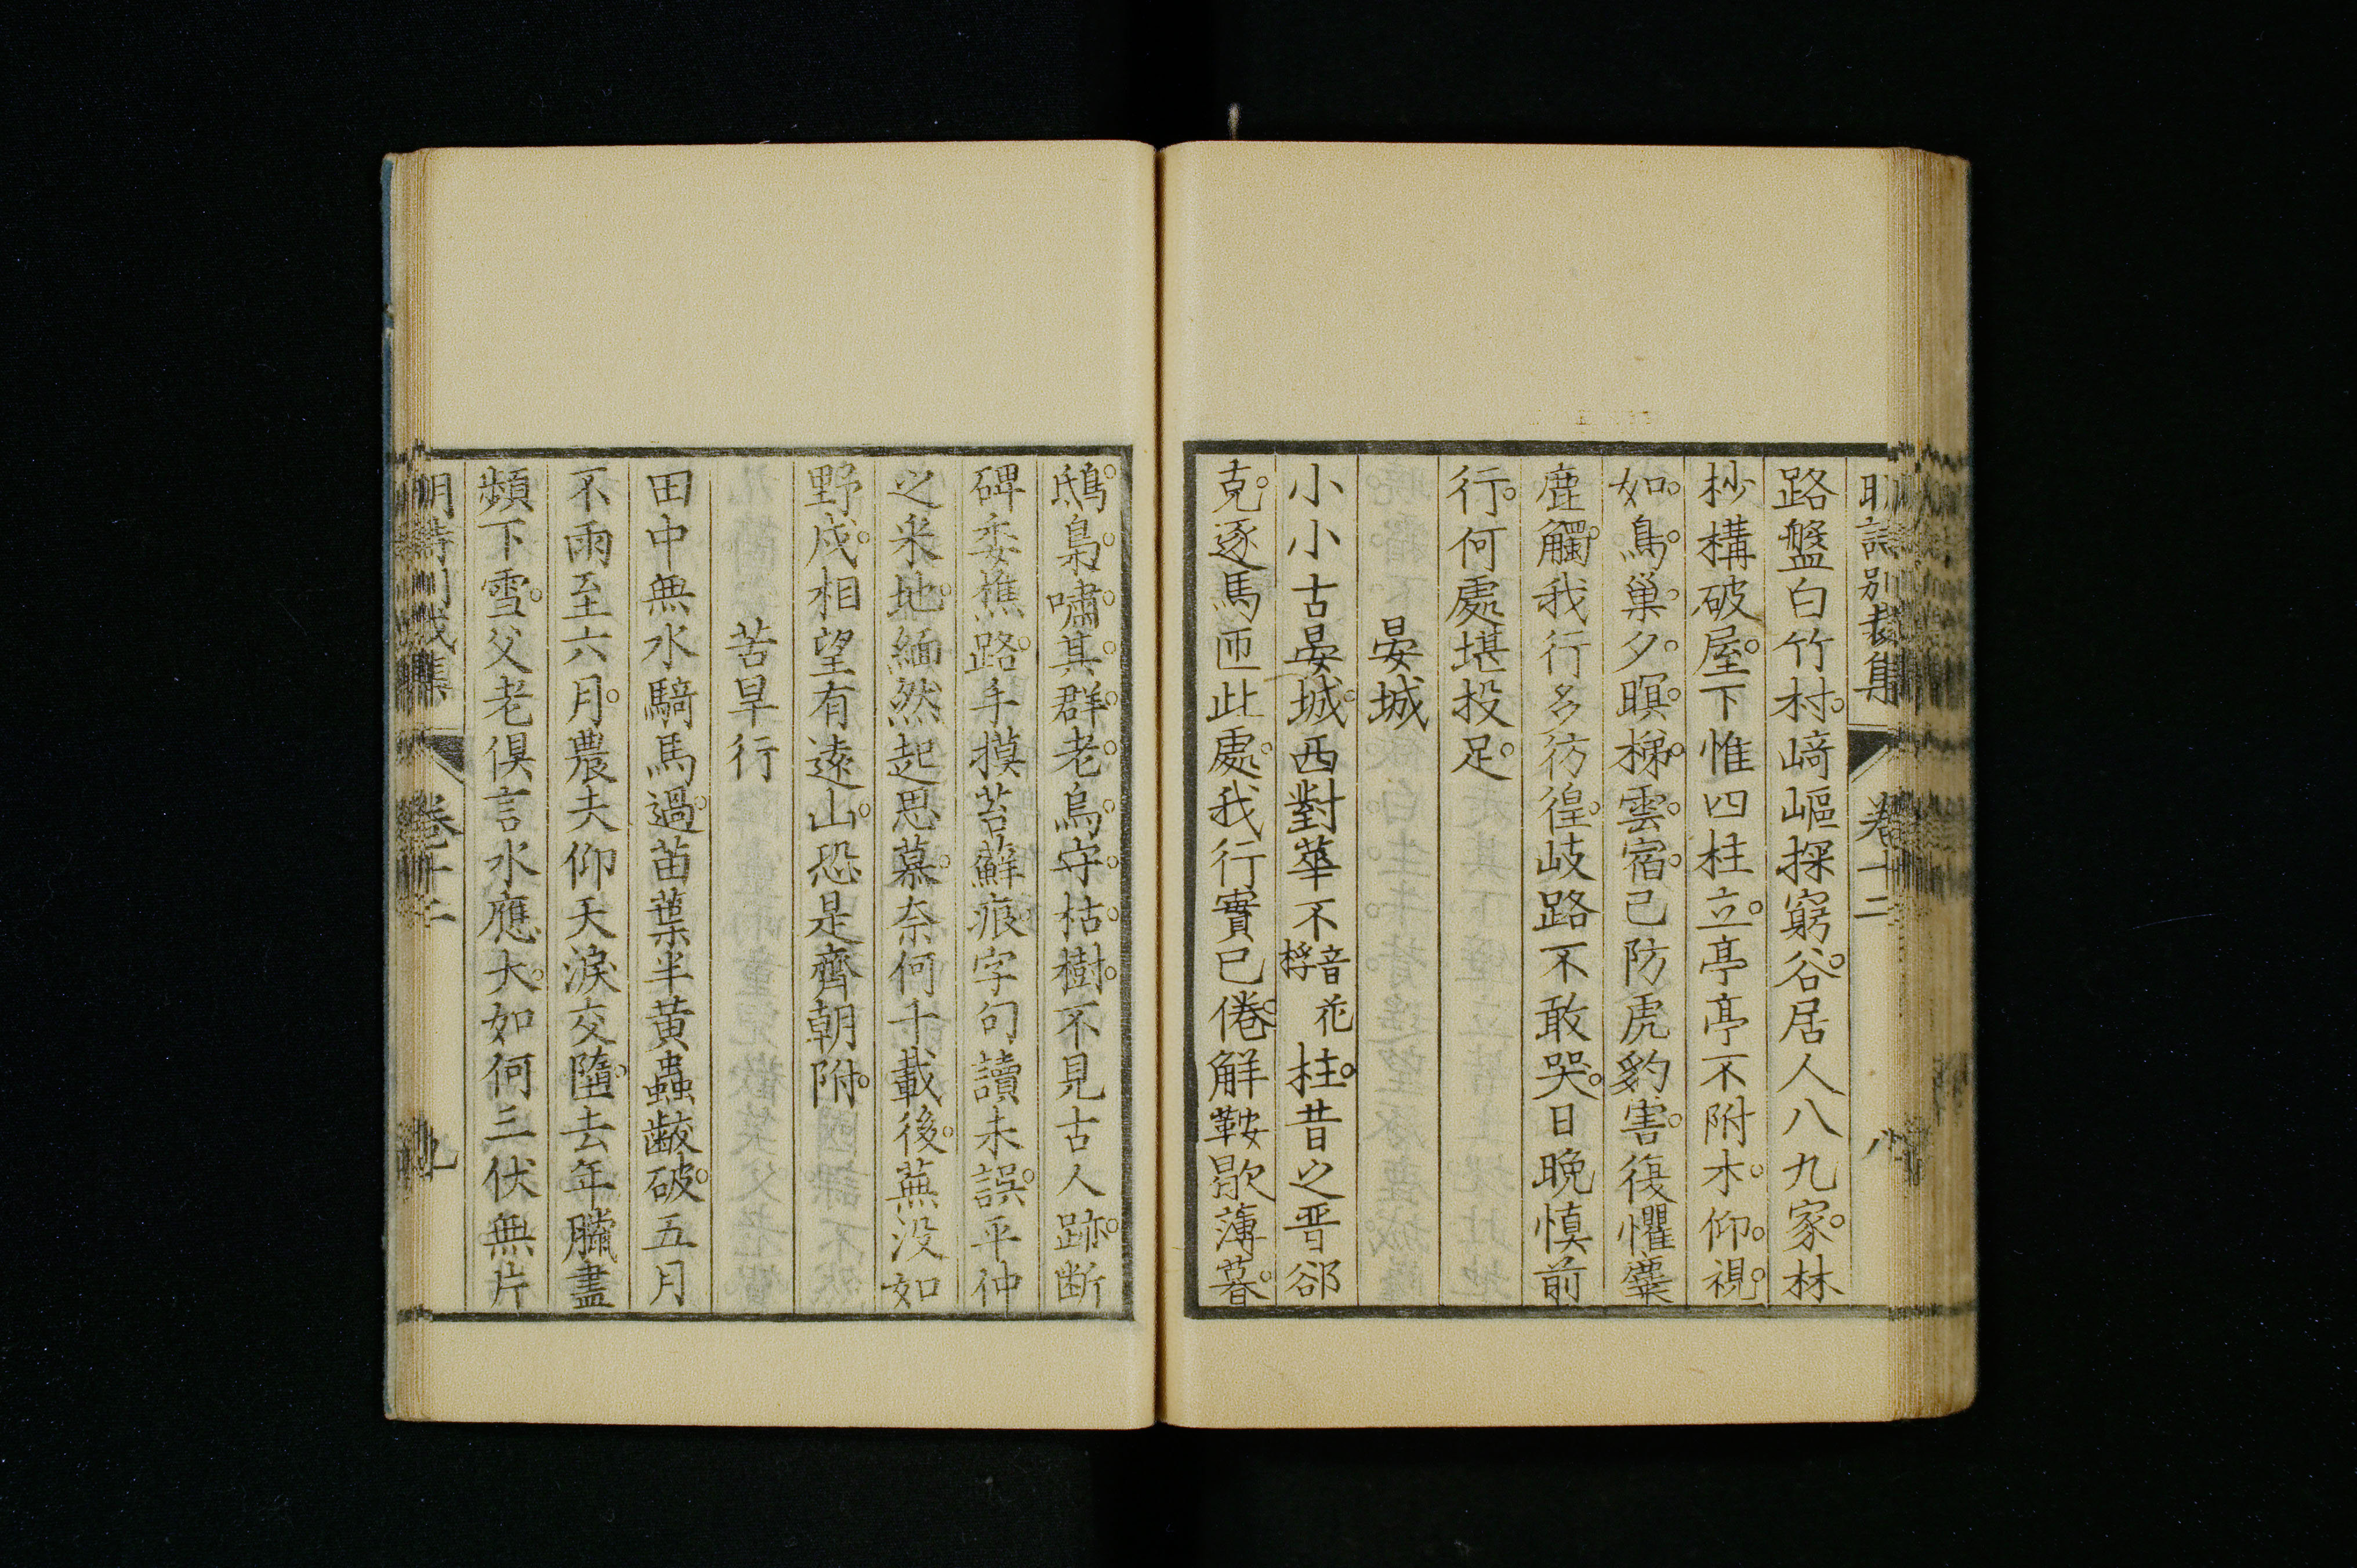 明詩別裁集 卷十二 八
路盤白竹村。﨑嶇探窮谷。居人八九家。林
杪構破屋。下惟四柱立。亭亭不附木。仰。視。
如。鳥。巢。夕。暝。梯。雲。宿。已防虎豹害。復懼麋
鹿觸。我行多彷徨。歧路不敢哭。日晚慎前
行。何處堪投足。
晏城
小小古晏城。西對華不音花桴柱。昔之晋郤
克。逐馬匝此處。我行實已倦。解鞍歇薄暮。
鴟。梟。嘯。其。群。老。烏。守。枯。樹。不見古人跡。断
碑委樵路。手摸苔蘚痕。字句讀未誤。平仲
之采地。緬然起思慕。奈何千載後。蕪没如
野戍。相望有遠山。恐是齊朝附。
苦旱行
田中無水騎馬過。苗葉半黃蟲齧破。五月
不雨至六月。農夫仰天淚交墮。去年臘盡
頻下雪。父老俱言水應大。如何三伏無片
明詩別裁集 卷十二 九